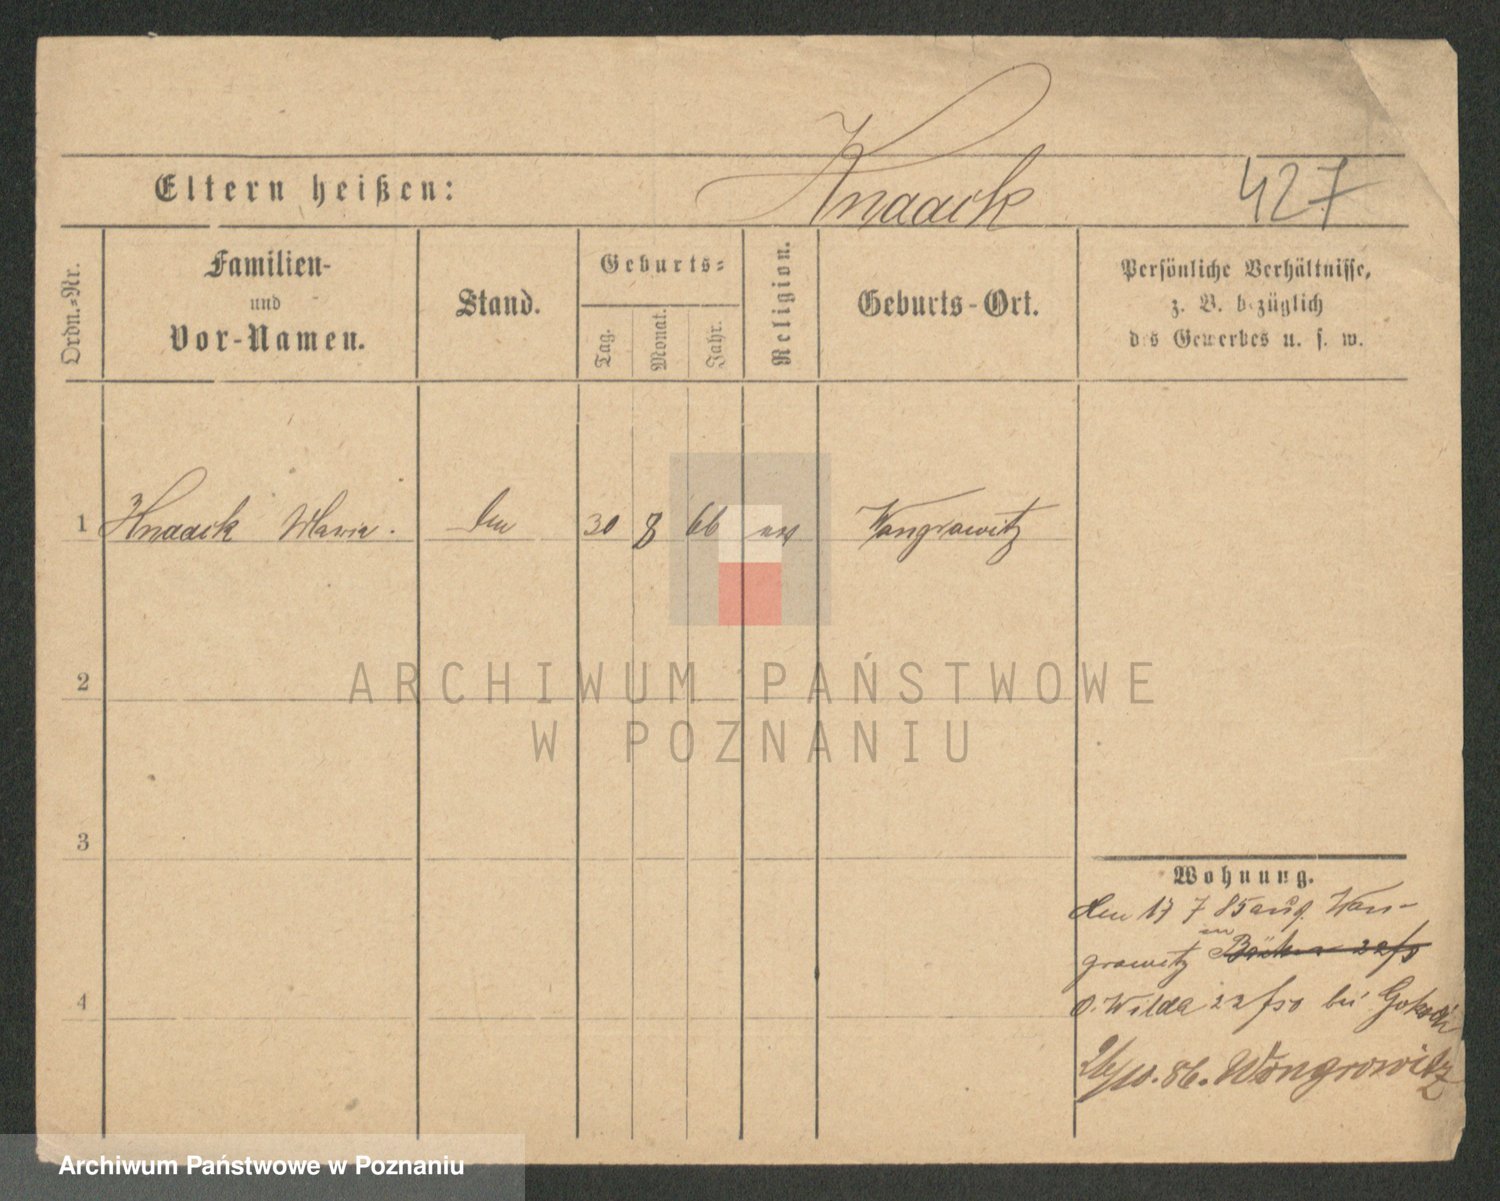 Knaack
427
Eltern heißen:
Ordn.-Nr.
Familien-
und
Vor-Namen.
Stand.
Geburts-
Tag.
Monat.
Jahr.
Religion.
Geburts-Ort.
Persönliche Verhältnisse,
z. B. bezüglich
des Gewerbes u. s. w.
1 Knaack Maria. 30 8 66 ev Wongrowitz
2
ARCHIWUM PAŃSTWOWE
W POZNANIU
3
4
Wohnung.
den 17 7 85 aus Won-
growitz
O. Wilda 22 bei
26/10. 86. Wongrowitz
Archiwum Państwowe w Poznaniu